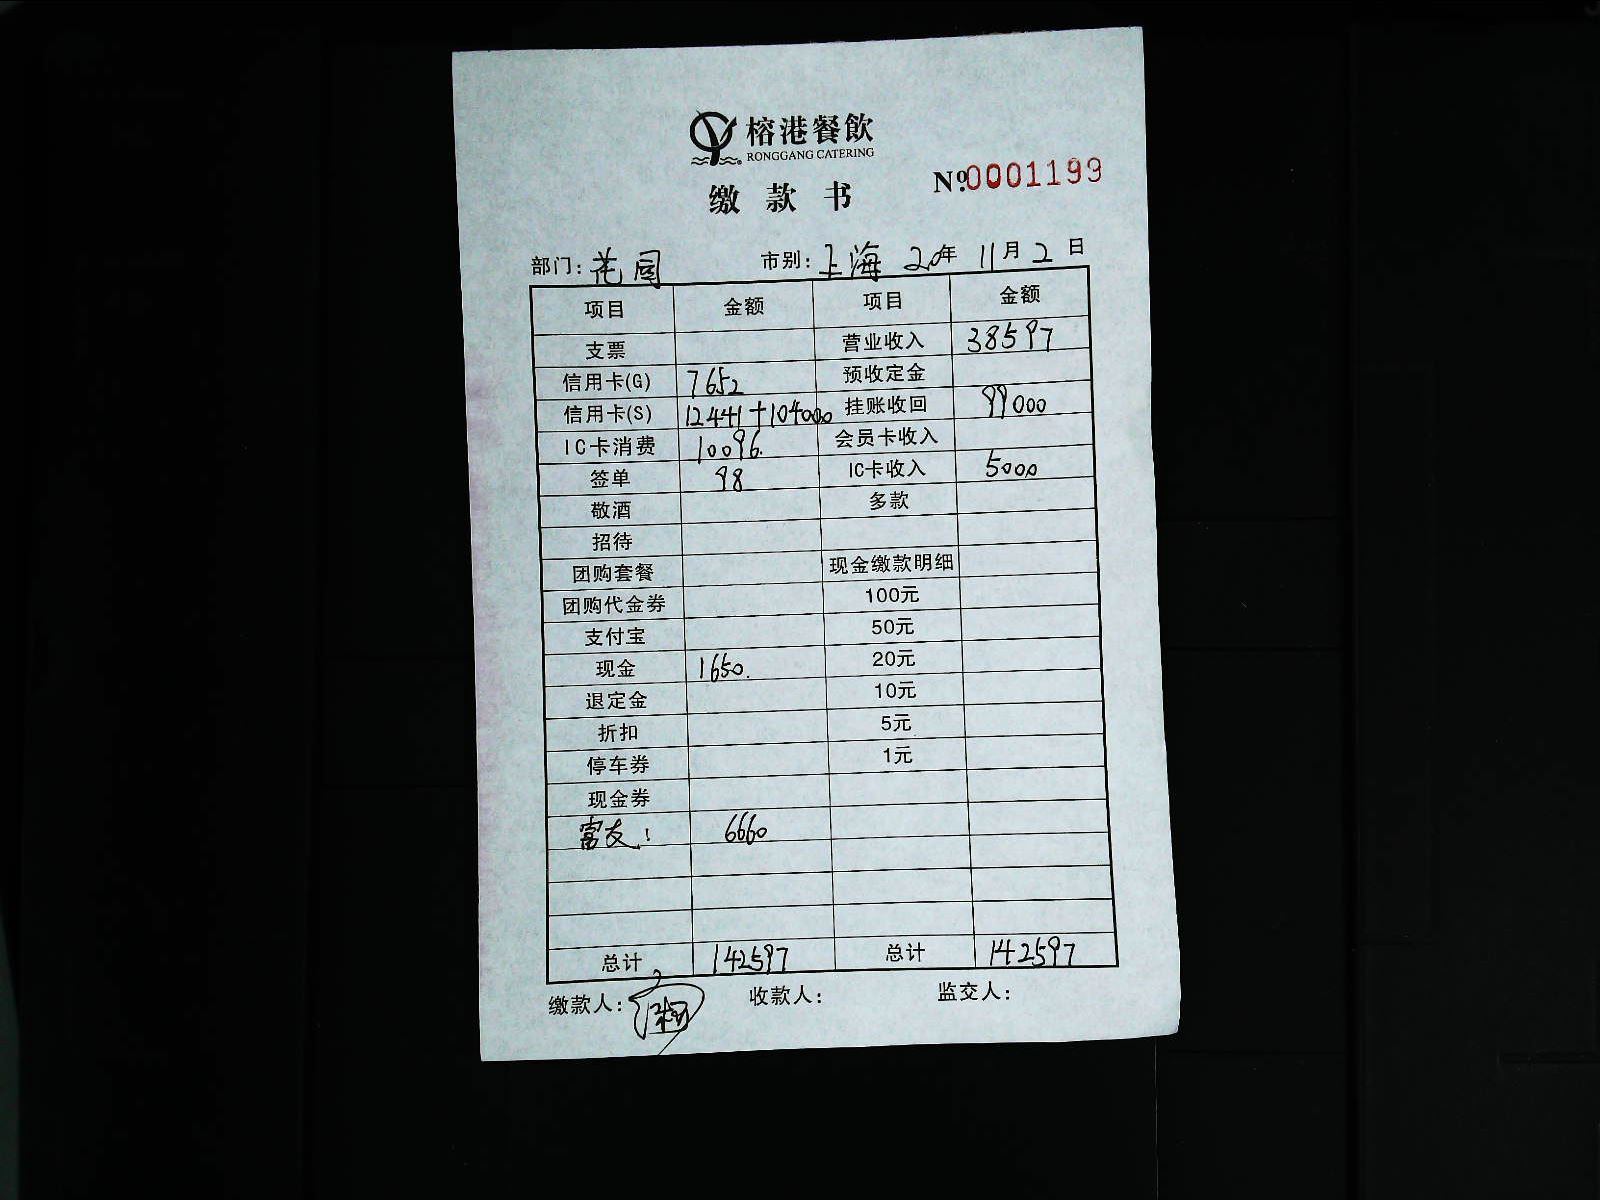 榕港餐飲
RONGGANG CATERING
缴款书
Nº0001199
部门：花园 市别：上海 20年 11月 2日
项目 金额 项目 金额
支票 营业收入 38597
信用卡(G) 7652 预收定金
信用卡(S) 12441+104000 挂账收回 99000
IC卡消费 10096. 会员卡收入
签单 98 IC卡收入 5000
敬酒 多款
招待
团购套餐 现金缴款明细
团购代金券 100元
支付宝 50元
现金 1650. 20元
退定金 10元
折扣 5元
停车券 1元
现金券
富友！ 6660
总计 142597 总计 142597
缴款人： 收款人： 监交人：